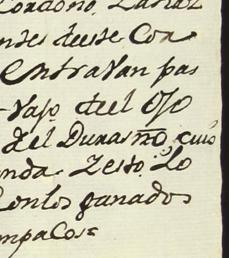 Cordono, Labiaz
ntes deeste Con
Entravan pas
vajo del Ojo
del Durasno, cuio
nda, Zesso, Lo
Con los ganados
mpacos=